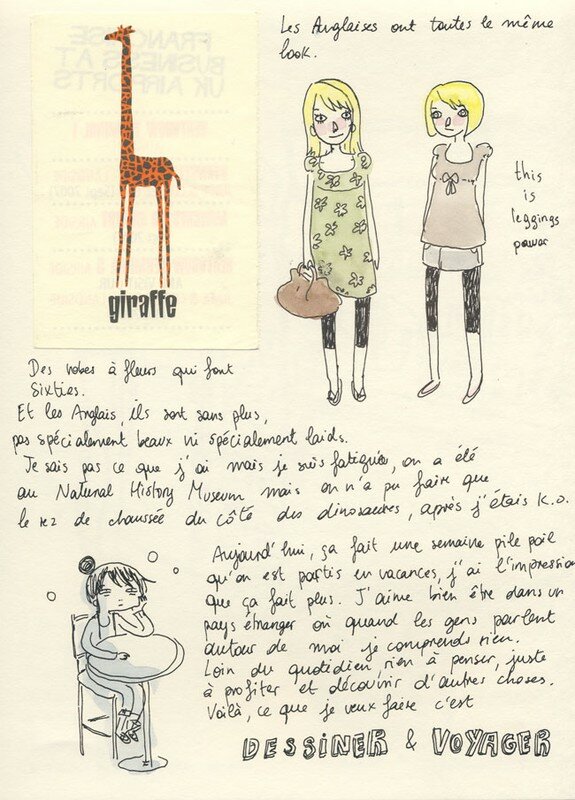 Les Anglaises ont toutes le même
look.
this
is
leggings
power
giraffe
Des robes à fleurs qui font
Sixties.
Et les Anglais, ils sont sans plus,
pas spécialement beaux ni spécialement laids.
Je sais pas ce que j'ai mais je suis fatiguée, on a été
au Natural History Museum mais on n'a pu faire que
le rez de chaussée du côté des dinosaures, après j'étais K.O.
Aujourd'hui, ça fait une semaine pile poil
qu'on est partis en vacances, j'ai l'impression
que ça fait plus. J'aime bien être dans un
pays étranger où quand les gens parlent
autour de moi je comprends rien.
Loin du quotidien, rien à penser, juste
à profiter et découvrir d'autres choses.
Voilà, ce que je veux faire c'est
DESSINER & VOYAGER